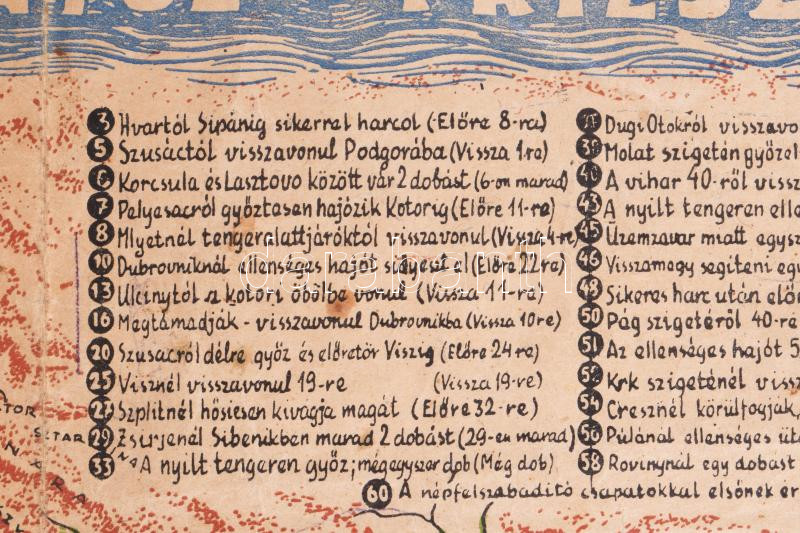 3 Hvartól Sipánig sikerrel harcol (Előre 8-ra)
5 Szusáctól visszavonul Podgorába (Vissza 1-re)
6 Korcsula és Lasztovo között vár 2 dobást (6-on marad)
7 Pelyesacról győztesen hajózik Kotorig (Előre 11-re)
8 Mlyetnél tengeralattjáróktól visszavonul (Vissza 4-re)
10 Dubrovniknál ellenséges hajót sülyeszt el (Előre 22re)
13 Ulcinytól a kotori öbölbe vonul (Vissza 11-re)
16 Megtámadják - visszavonul Dubrovnikba (Vissza 10re)
20 Szusacról délre győz és előretör Viszig (Előre 24 re)
25 Visznél visszavonul 19-re (Vissza 19-re)
27 Szplitnél hősiesen kivágja magát (Előre 32-re)
29 Zsirjenél Sibenikben marad 2 dobást (29-en marad)
33 A nyílt tengeren győz; mégegyszer dob (Még dob)
Dugi Otokról visszavo
39 Molat szigetén győzel
40 A vihar 40-ről vissz
43 A nyílt tengeren elle
45 Üzemzavar miatt egysz
46 Visszamegy segíteni egy
48 Sikeres harc után elő
50 Pág szigetéről 40-re
51 Az ellenséges hajót 5
52 Krk szigeténél vissz
54 Cresznél körülfogják,
56 Púlánál ellenséges üt
58 Rovinynál egy dobást
60 A népfelszabadító csapatokkal elsőnek ér
TOR
SITAR
NARA
darabanth